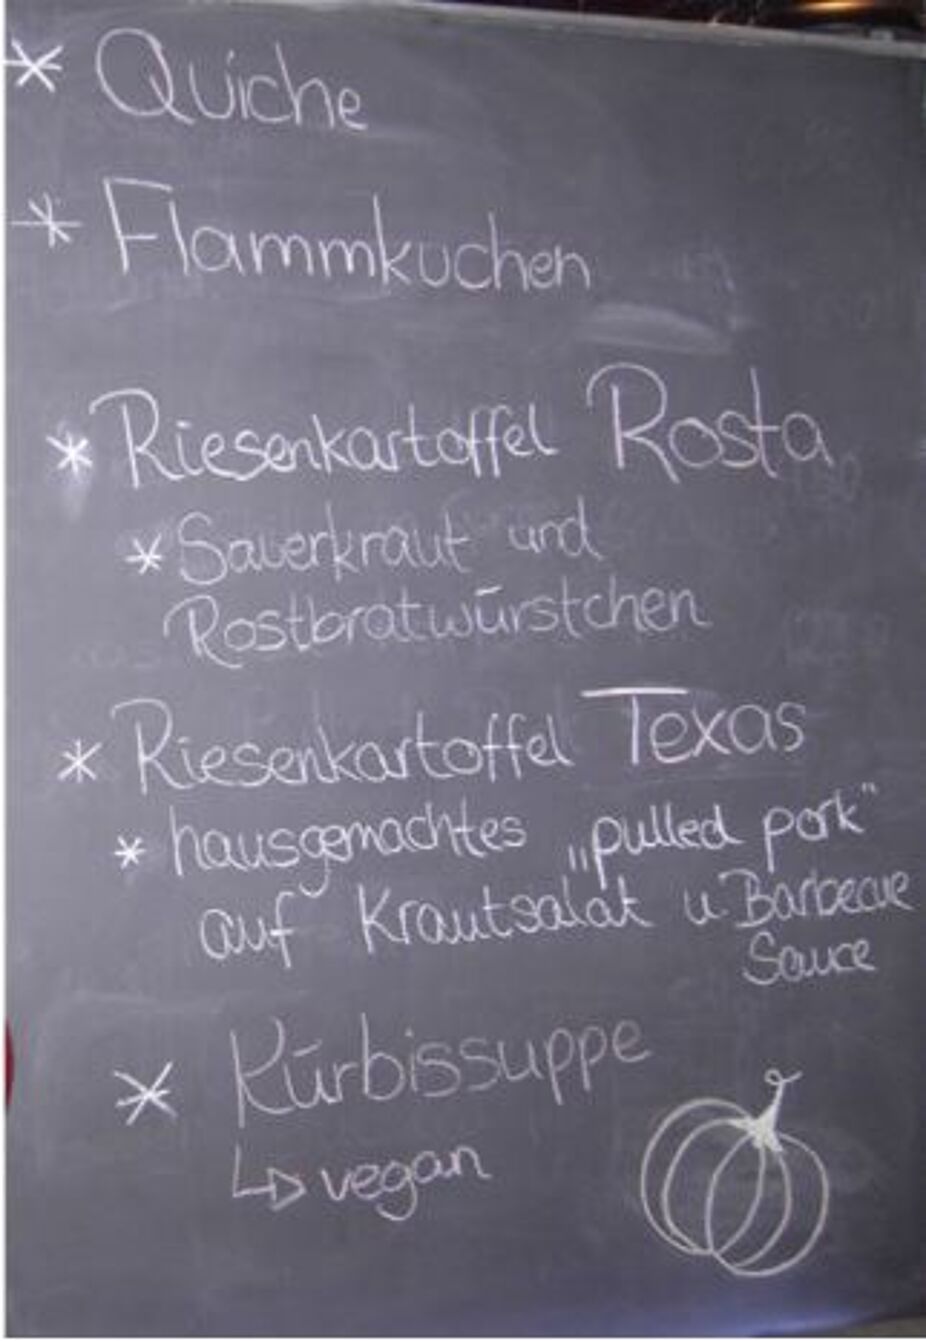 * Quiche
* Flammkuchen
* Riesenkartoffel Rosta
* Sauerkraut und
Rostbratwürstchen
* Riesenkartoffel Texas
* hausgemachtes „pulled pork"
auf Krautsalat u. Barbecue
Sauce
* Kürbissuppe
↳ vegan